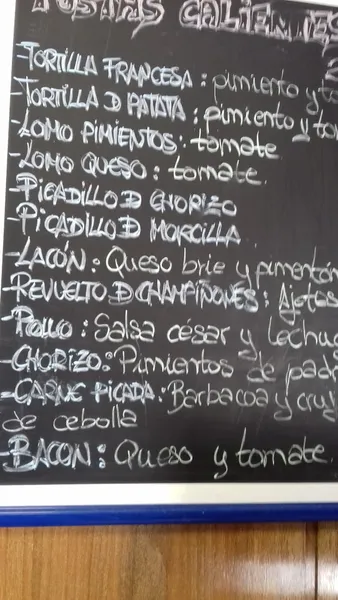 TOSTAS CALIENTES
-TORTILLA FRANCESA: pimiento y to
-TORTILLA D PATATA: pimiento y to
-LOMO PIMIENTOS: tomate
-LOMO QUESO: tomate
-PICADILLO D CHORIZO
-PICADILLO D MORCILLA
-LACÓN: Queso brie y pimentón
-REVUELTO D CHAMPIÑONES: Ajetes
-POLLO: Salsa césar y lechu
-CHORIZO: Pimientos de padr
-CARNE PICADA: Barbacoa y cruj
de cebolla
-BACON: Queso y tomate